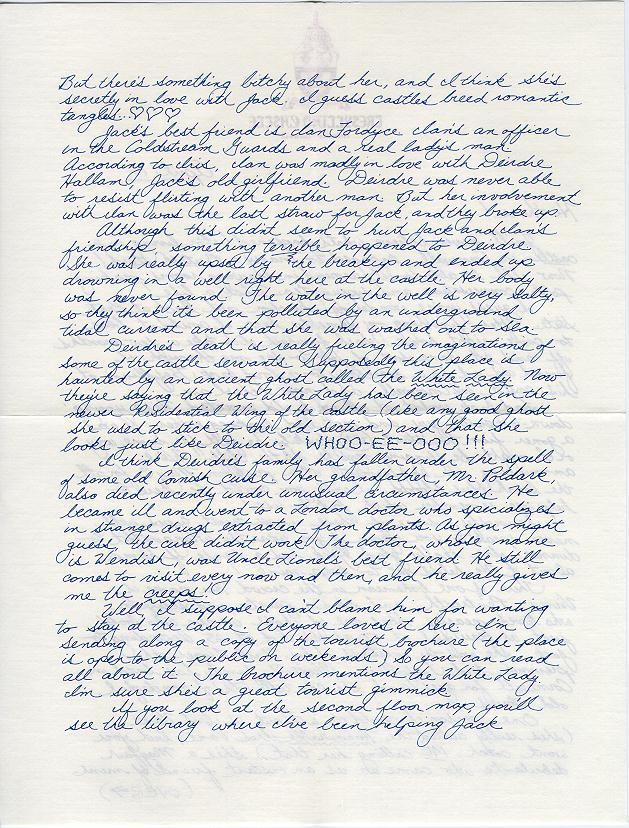 But there's something bitchy about her, and I think she's
secretly in love with Jack. I guess castles breed romantic
tangles. ♡♡♡
Jack's best friend is Ian Fordyce. Ian's an officer
in the Coldstream Guards and a real lady's man.
According to Iris, Ian was madly in love with Deirdre
Hallam, Jack's old girlfriend. Deirdre was never able
to resist flirting with another man. But her involvement
with Ian was the last straw for Jack, and they broke up.
Although this didn't seem to hurt Jack and Ian's
friendship, something terrible happened to Deirdre.
She was really upset by the breakup and ended up
drowning in a well right here at the castle. Her body
was never found. The water in the well is very salty,
so they think it's been polluted by an underground
tidal current and that she was washed out to sea.
Deirdre's death is really fueling the imaginations of
some of the castle servants. Supposedly this place is
haunted by an ancient ghost called the White Lady. Now
they're saying that the White Lady has been seen in the
newer Residential Wing of the castle (like any good ghost
she used to stick to the old section) and that she
looks just like Deirdre. WHOO-EE-OOO!!!
I think Deirdre's family has fallen under the spell
of some old Cornish curse. Her grandfather, Mr. Poldark,
also died recently under unusual circumstances. He
became ill and went to a London doctor who specializes
in strange drugs extracted from plants. As you might
guess, the cure didn't work. The doctor, whose name
is Wendish, was Uncle Lionel's best friend. He still
comes to visit every now and then, and he really gives
me the creeps!
Well, I suppose I can't blame him for wanting
to stay at the castle. Everyone loves it here. I'm
sending along a copy of the tourist brochure (the place
is open to the public on weekends) so you can read
all about it. The brochure mentions the White Lady.
I'm sure she's a great tourist gimmick.
If you look at the second floor map, you'll
see the library where I've been helping Jack